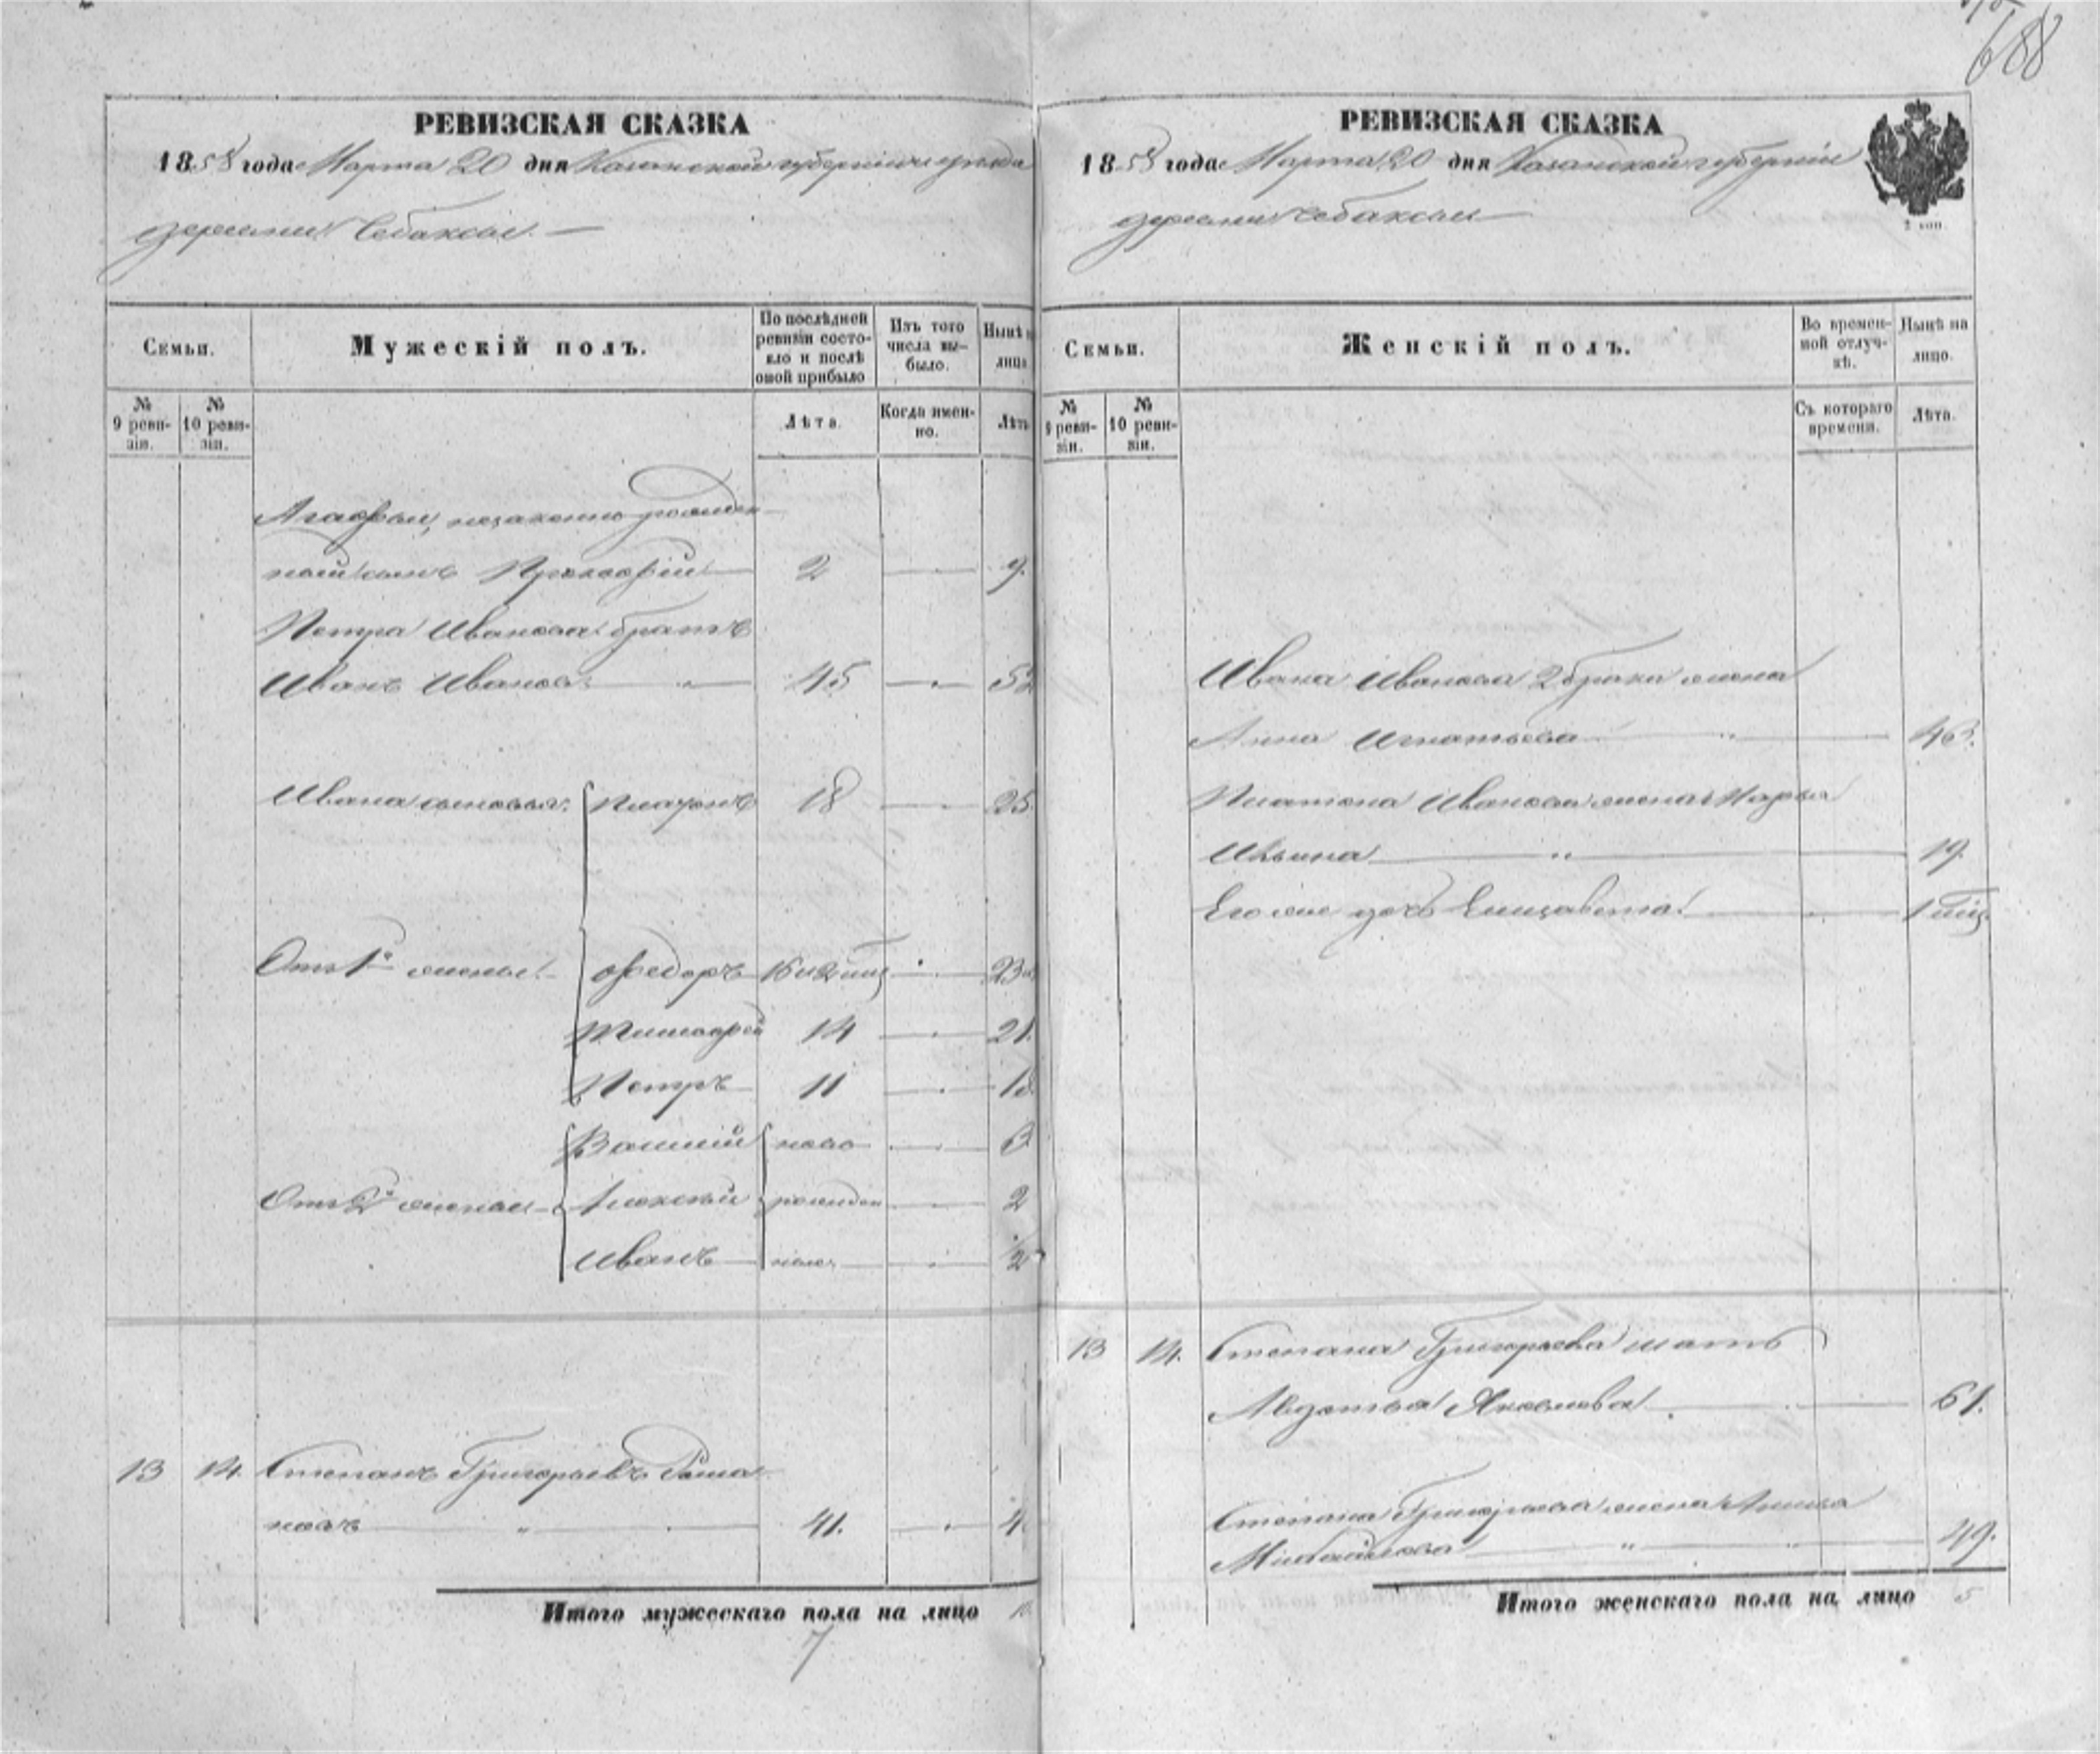 688
РЕВИЗСКАЯ СКАЗКА
1858 года Марта 20 дня Казанской губернии и уезда
деревни Чебаксы.
Семьи.
Мужескій полъ.
По послѣдней ревизіи состояло и послѣ оной прибыло
Изъ того числа выбыло.
Нынѣ на лицо
№ 9 ревизіи.
№ 10 ревизіи.
Лѣта.
Когда именно.
Лѣта
Агафьи, незаконно рожден
ной сынъ Прокофій 2 9.
Петра Иванова братъ
Иванъ Ивановъ 45
Ивана сыновья: Платонъ 18 25
Отъ 1й жены Федоръ 16 и 2 мѣс 23
Тимофей 14 21.
Петръ 11 18
Василій ново 6
Отъ 2й жены Алексей рожден 2
Иванъ ные 1/2
13 14. Степанъ Григорьевъ Рома
новъ 41.
Итого мужескаго пола на лицо 10.
7
РЕВИЗСКАЯ СКАЗКА
1858 года Марта 20 дня Казанской губернии
деревни Чебаксы
2 коп.
Семьи.
Женскій полъ.
Во временной отлучкѣ.
Нынѣ на лицо.
№ 9 ревизіи.
№ 10 ревизіи.
Съ котораго времени.
Лѣта.
Ивана Иванова 2 брака жена
Анна Игнатьева 43.
Платона Иванова жена Марья
Ильина 19.
Его же дочь Елизавета 1 мѣс
13 14. Степана Григорьева мать
Авдотья Яковлева 61.
Степана Григорьева жена
Михайлова 49.
Итого женскаго пола на лицо 5